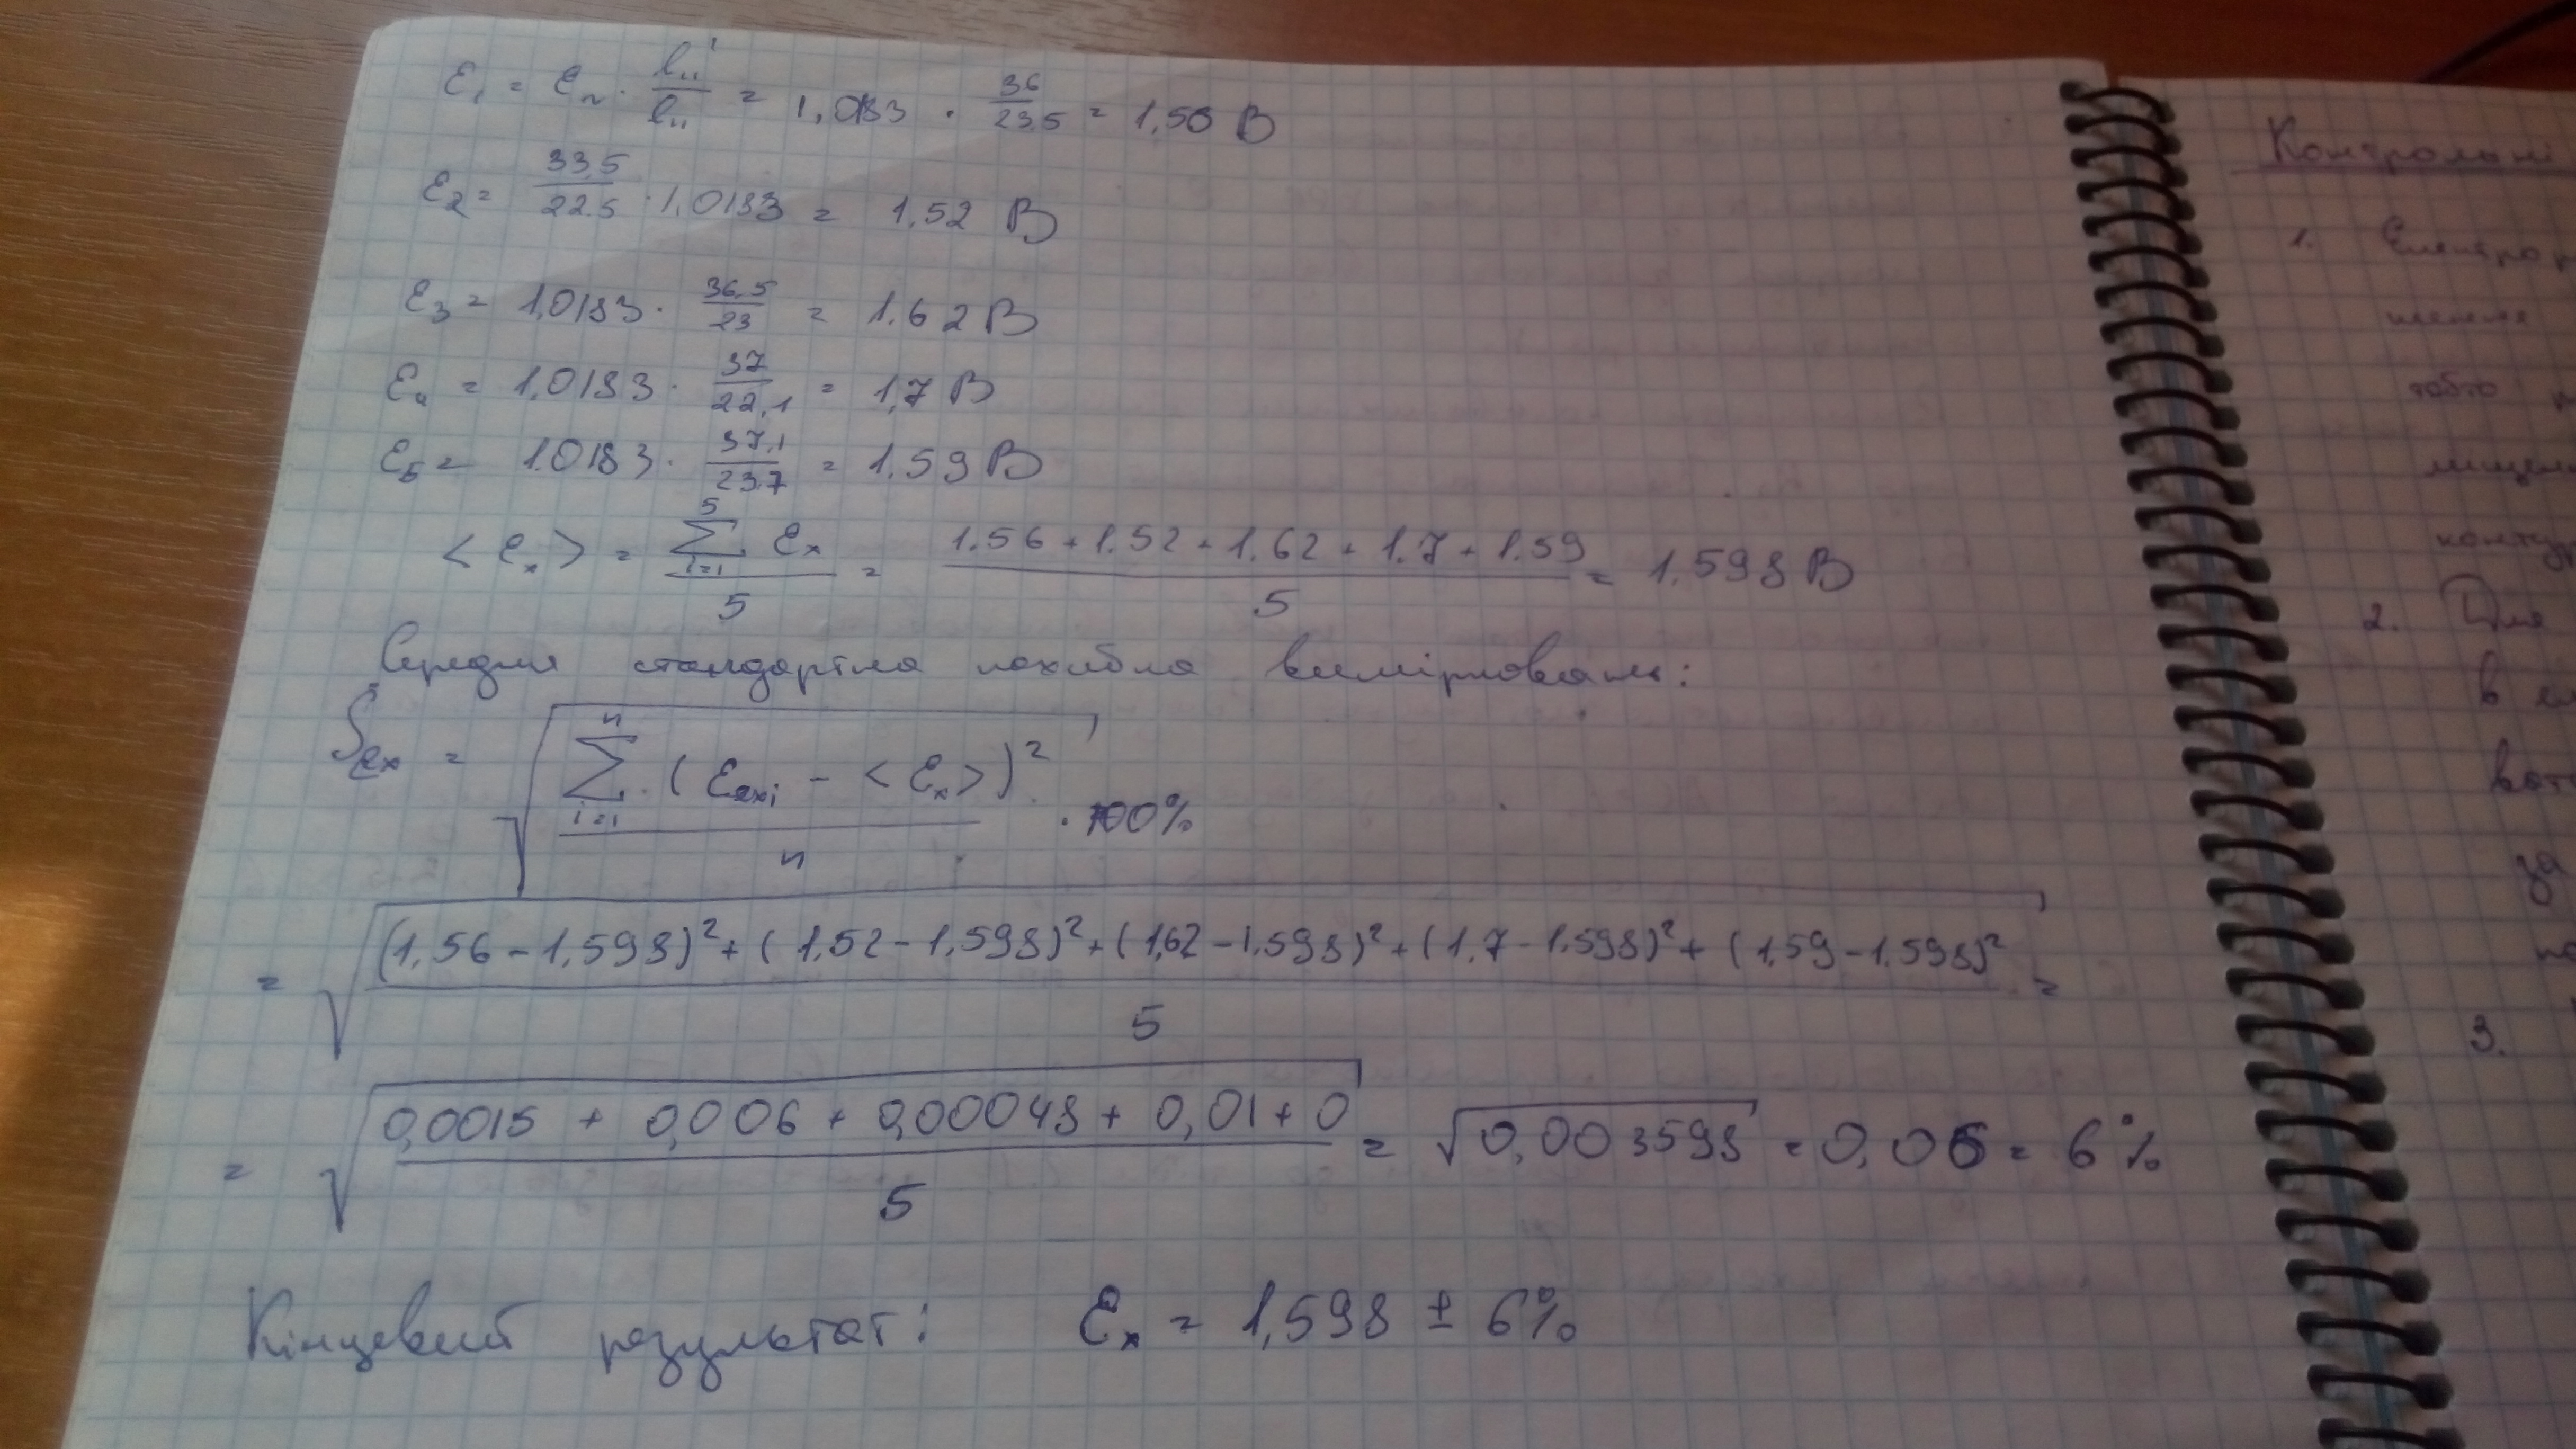 ε₁ = εₙ · l₁₁' / l₁₁ = 1,0183 · 36 / 23,5 = 1,56 В
ε₂ = 33,5 / 22.5 · 1,0183 = 1.52 В
ε₃ = 1,0183 · 36,5 / 23 = 1.62 В
ε₄ = 1,0183 · 37 / 22,1 = 1,7 В
ε₅ = 1.0183 · 37,1 / 23.7 = 1.59 В
<εₓ> = ∑ᵢ₌₁⁵ εₓ / 5 = 1.56 + 1.52 + 1.62 + 1.7 + 1.59 / 5 = 1.598 В
Середня стандартна похибка вимірювань:
δεₓ = √(∑ᵢ₌₁ⁿ (εₑₓᵢ - <εₓ>)² / n) · 100%
= √((1,56 - 1,598)² + (1,52 - 1,598)² + (1,62 - 1,598)² + (1.7 - 1.598)² + (1.59 - 1.598)² / 5) =
= √(0,0015 + 0,006 + 0,00048 + 0,01 + 0 / 5) = √0,003598 = 0,06 = 6%
Кінцевий результат: εₓ = 1,598 ± 6%
Контрольні
1. Електро
тобто
2. Для
в
за
3.